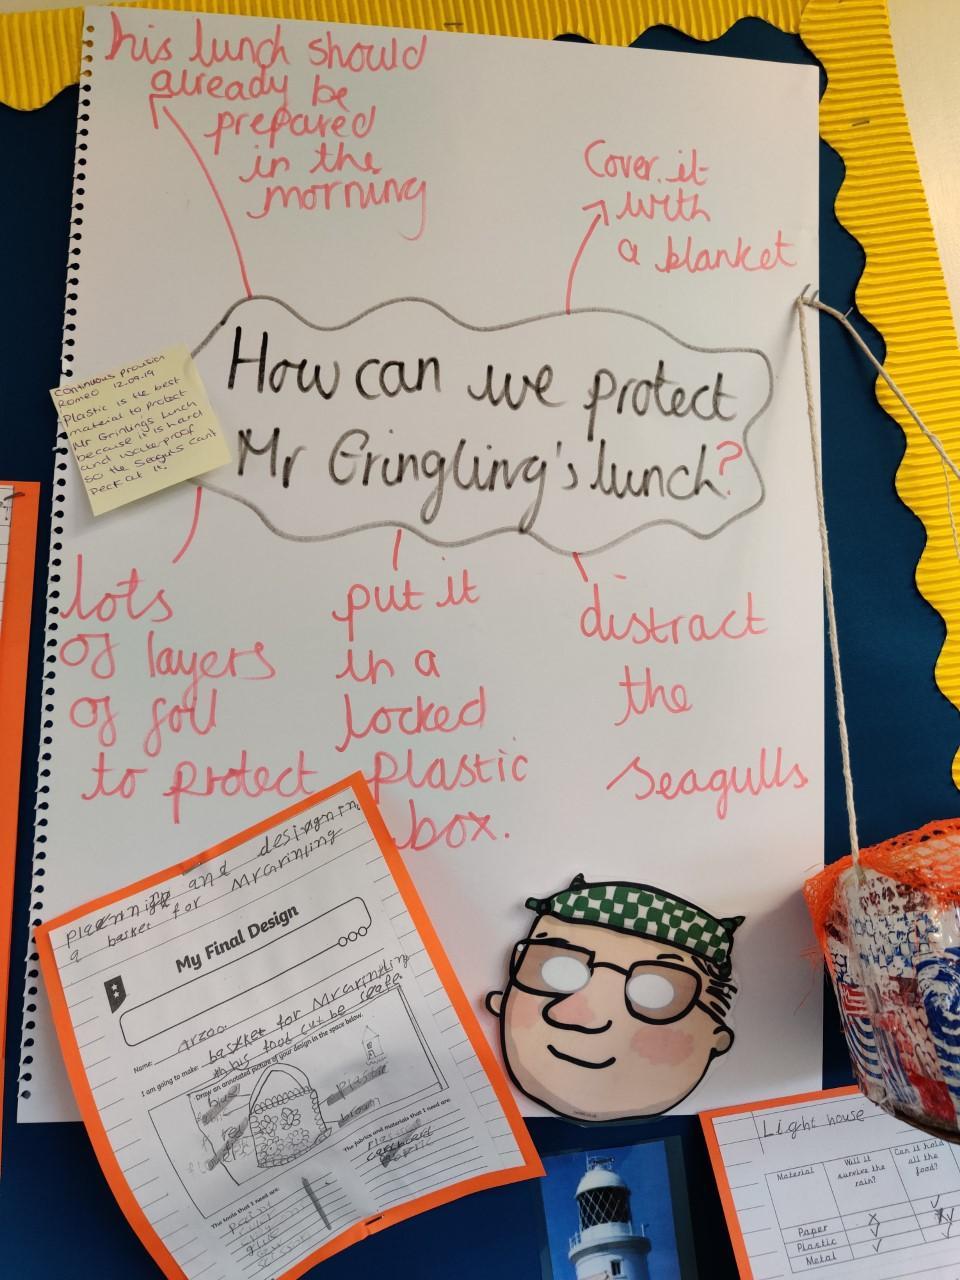 his lunch should
already be
prepared
in the
morning
Cover it
with
a blanket
How can we protect
Mr Gringling's lunch?
Continuous Provision
Romeo 12.09.19
Plastic is the best
material to protect
Mr Grinlings lunch
because it is hard
and waterproof
so the seaguls cant
peck at it.
lots
of layers
of foil
to protect
put it
in a
locked
plastic
box.
distract
the
seagulls
and designin
a basket for MrGrinling
My Final Design
Name: Arzoo
I am going to make: basket for MrGrinling
Draw an annotated picture of your design in the space below.
Plastic
The fabrics and materials that I need are:
The tools that I need are:
Light house
Material
Will it
survive the
rain?
Can it hold
all the
food?
Paper
Plastic
Metal